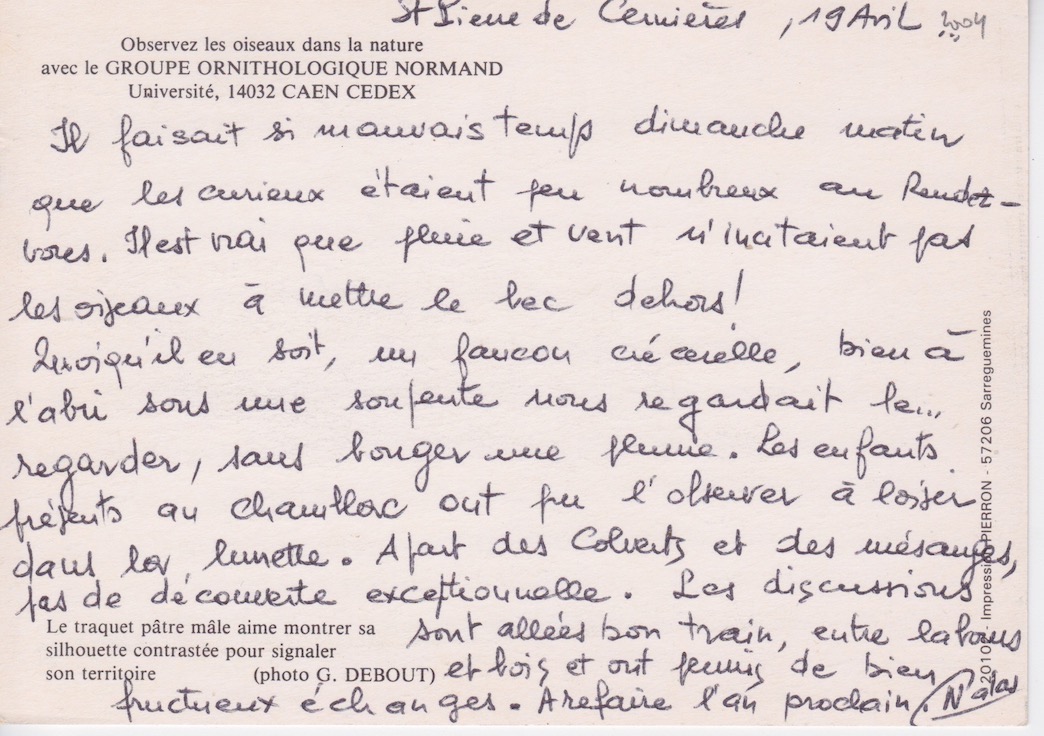 St Pierre de Cernières, 19 Avril 2004
Observez les oiseaux dans la nature
avec le GROUPE ORNITHOLOGIQUE NORMAND
Université, 14032 CAEN CEDEX
Il faisait si mauvais temps dimanche matin
que les curieux étaient peu nombreux au Rendez-
vous. Il est vrai que pluie et vent n'incitaient pas
les oiseaux à mettre le bec dehors!
Quoiqu'il en soit, un faucon crécerelle, bien à
l'abri sous une soupente nous regardait le...
regarder, sans bouger une plume. Les enfants
présents au chamlloc ont pu l'observer à loisir
dans la lunette. A part des Colverts et des mésanges,
pas de découverte exceptionnelle. Les discussions
sont allées bon train, entre labours
et bois et ont permis de bien
fructueux échanges. A refaire l'an prochain.
Le traquet pâtre mâle aime montrer sa
silhouette contrastée pour signaler
son territoire (photo G. DEBOUT)
20102 - Impression PIERRON - 57206 Sarreguemines